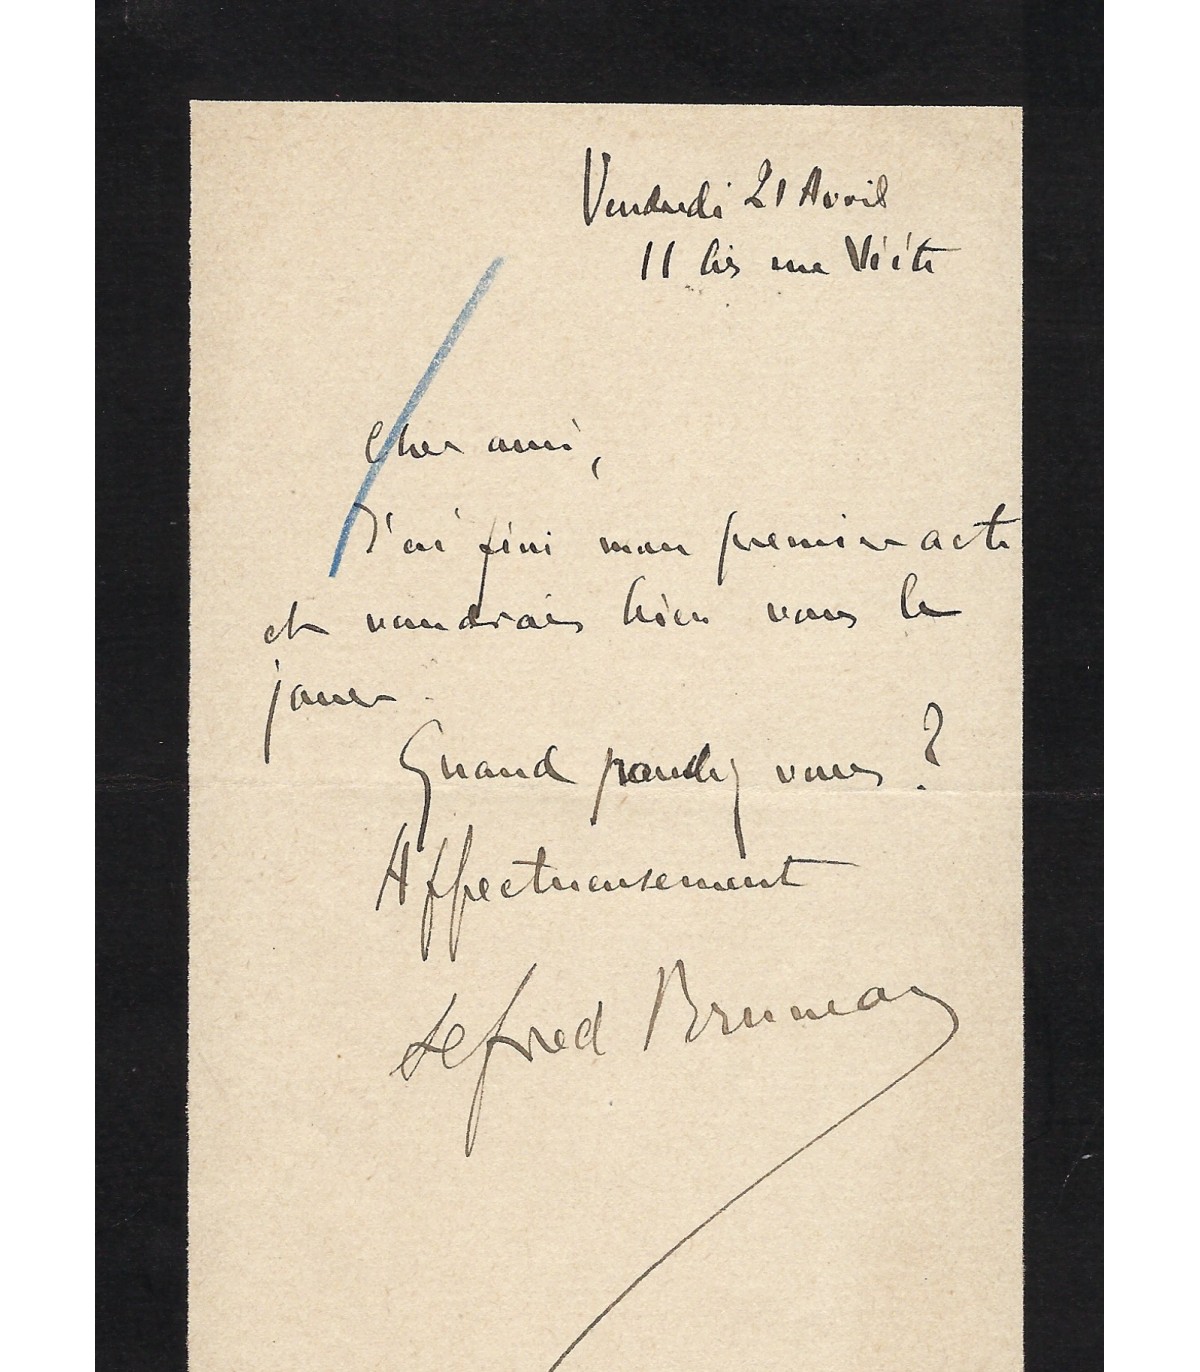 Vendredi 21 Avril
11 bis rue Viète
Cher ami,
J'ai fini mon premier acte
et voudrais bien vous le
jouer.
Quand voulez vous ?
Affectueusement
Alfred Bruneau